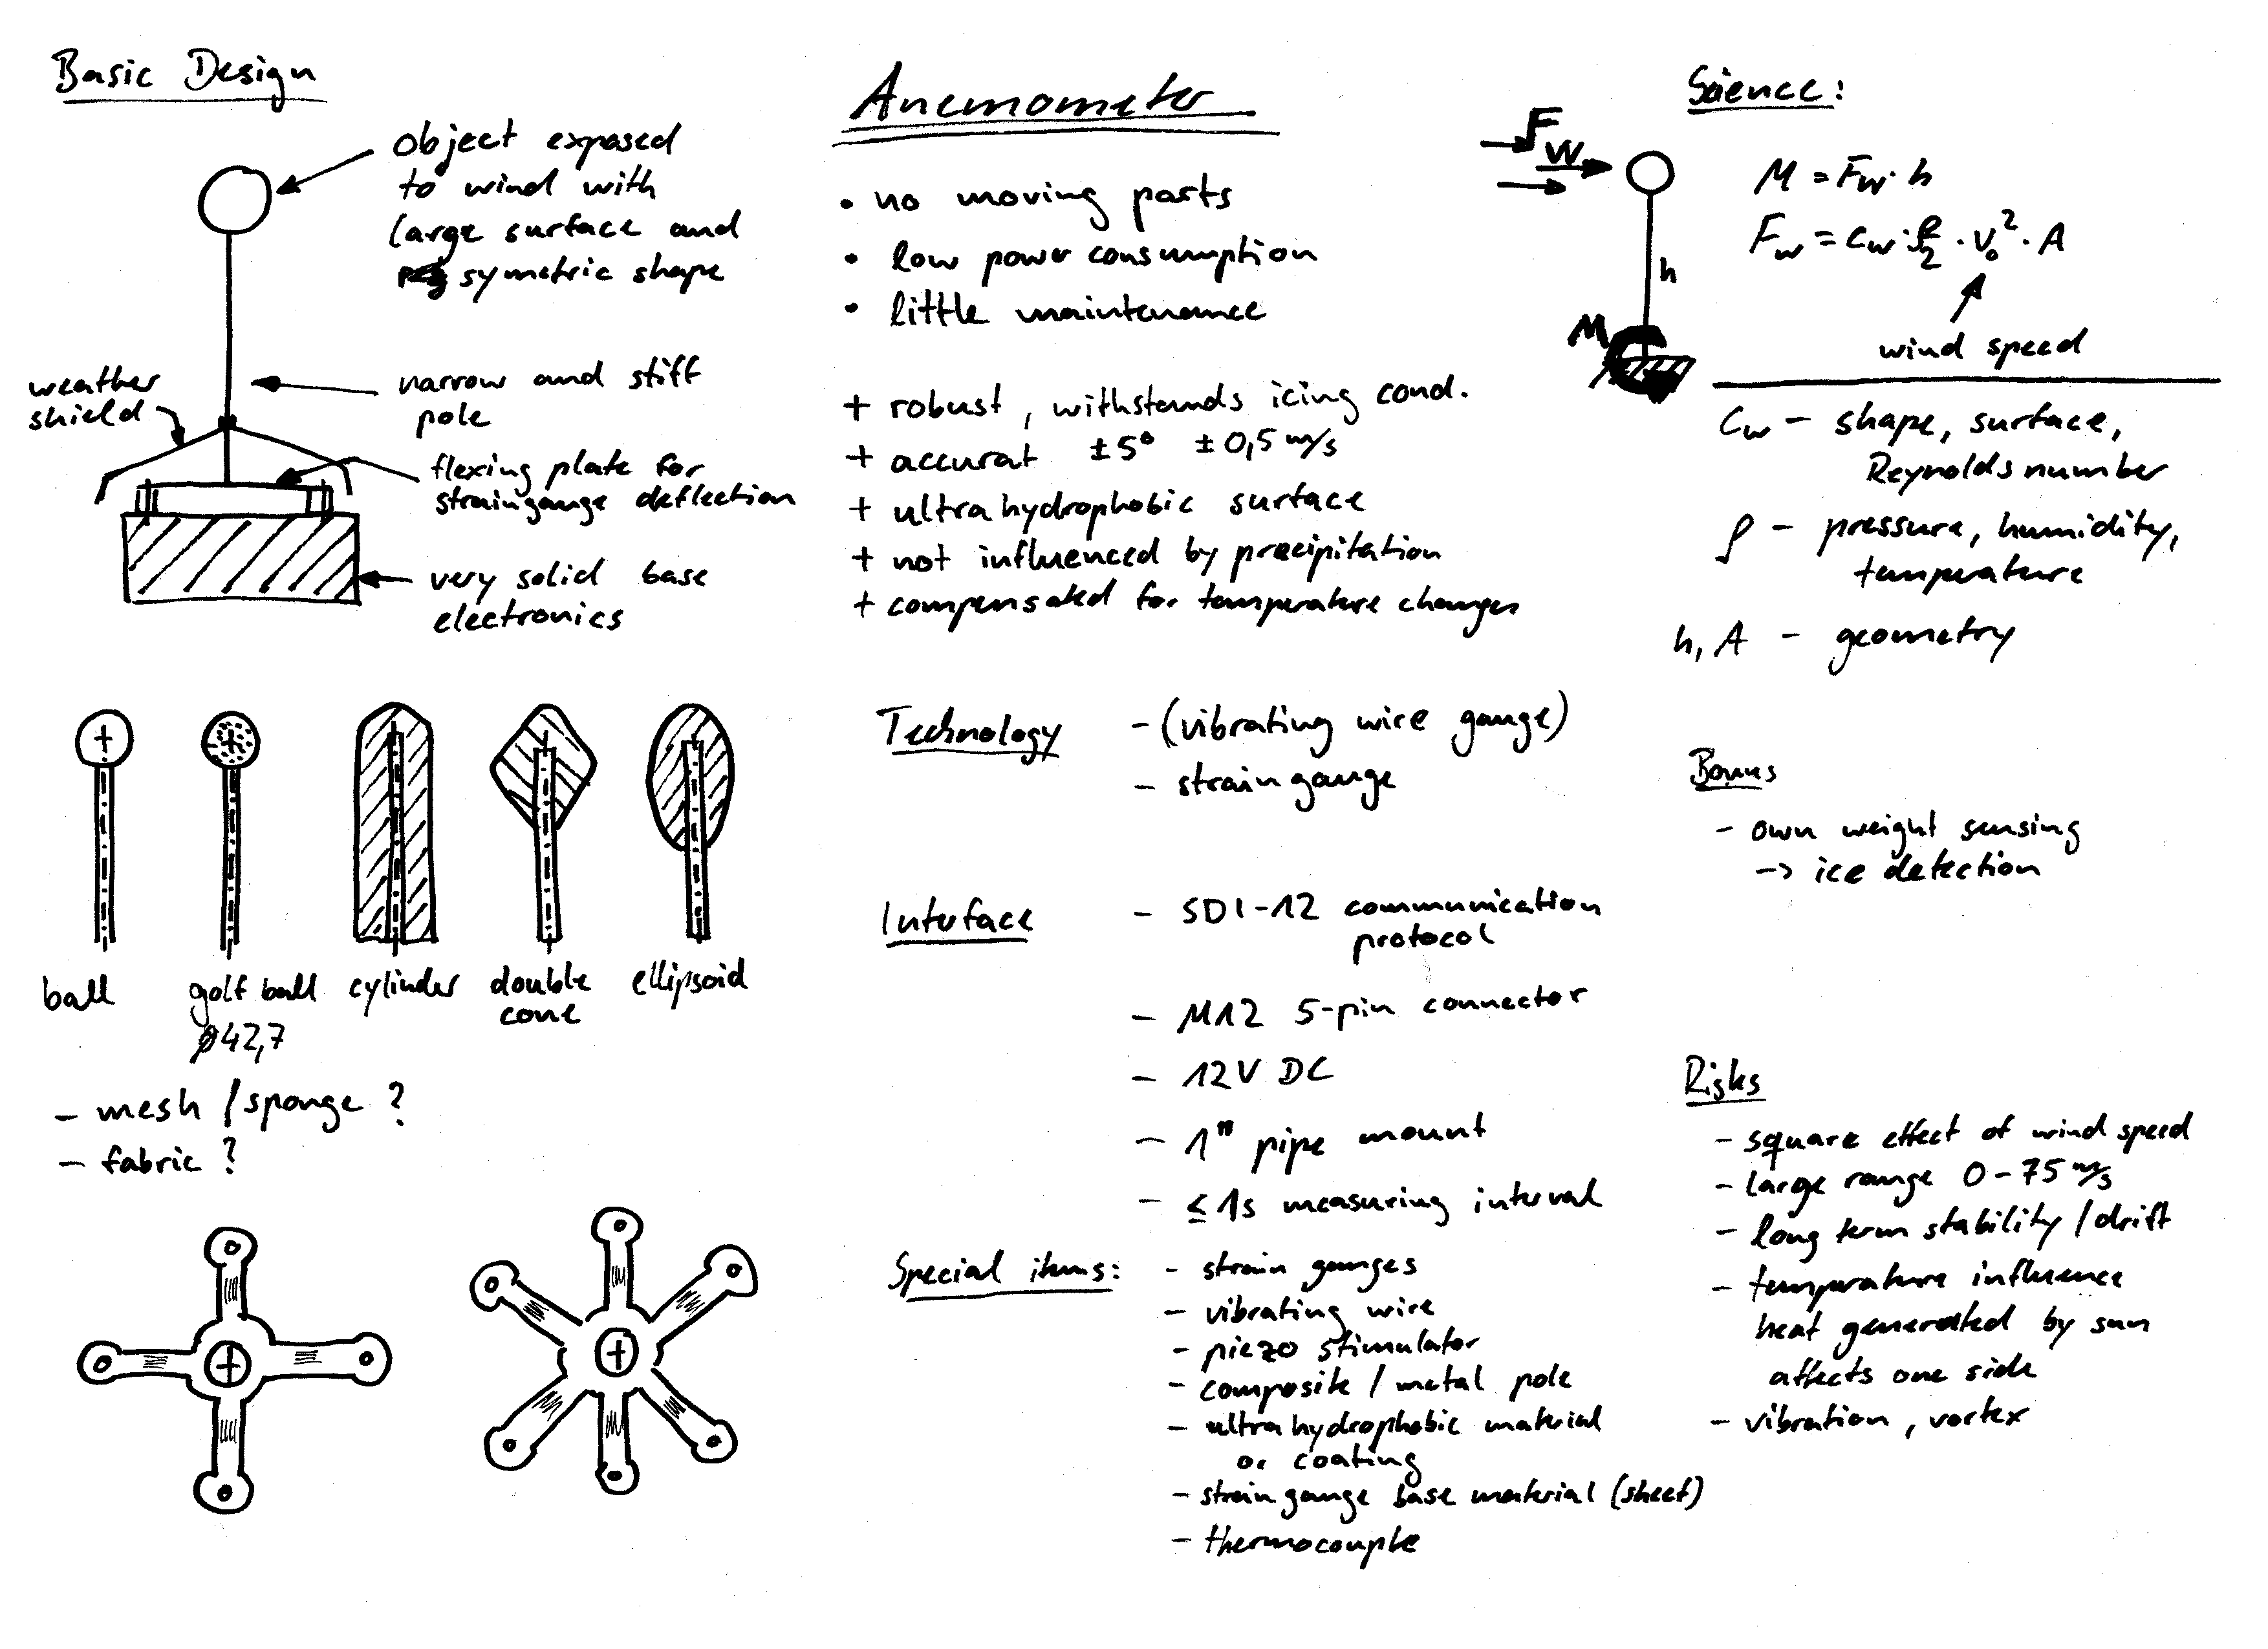 Basic Design
Object exposed
to wind with
large surface and
symetric shape
weather
shield
narrow and stiff
pole
flexing plate for
straingauge deflection
very solid base
electronics
ball
golf ball
ø42,7
cylinder
double
cone
ellipsoid
- mesh / sponge ?
- fabric ?
Anemometer
• no moving parts
• low power consumption
• little maintenance
+ robust, withstands icing cond.
+ accurat ±5° ±0,5 m/s
+ ultrahydrophobic surface
+ not influenced by precipitation
+ compensated for temperature changes
Technology - (vibrating wire gauge)
- strain gauge
Interface - SDI-12 communication
protocol
- M12 5-pin connector
- 12V DC
- 1" pipe mount
- ≤ 1s measuring interval
Special items: - strain gauges
- vibrating wire
- piezo stimulator
- composite / metal pole
- ultrahydrophobic material
or coating
- strain gauge base material (sheet)
- thermocouple
Science:
Fw
h
M
M = Fw · h
Fw = cw · ρ/2 · v₀² · A
wind speed
Cw - shape, surface,
Reynolds number
ρ - pressure, humidity,
temperature
h, A - geometry
Bonus
- own weight sensing
-> ice detection
Risks
- square effect of wind speed
- large range 0-75 m/s
- long term stability / drift
- temperature influence
heat generated by sun
affects one side
- vibration, vortex